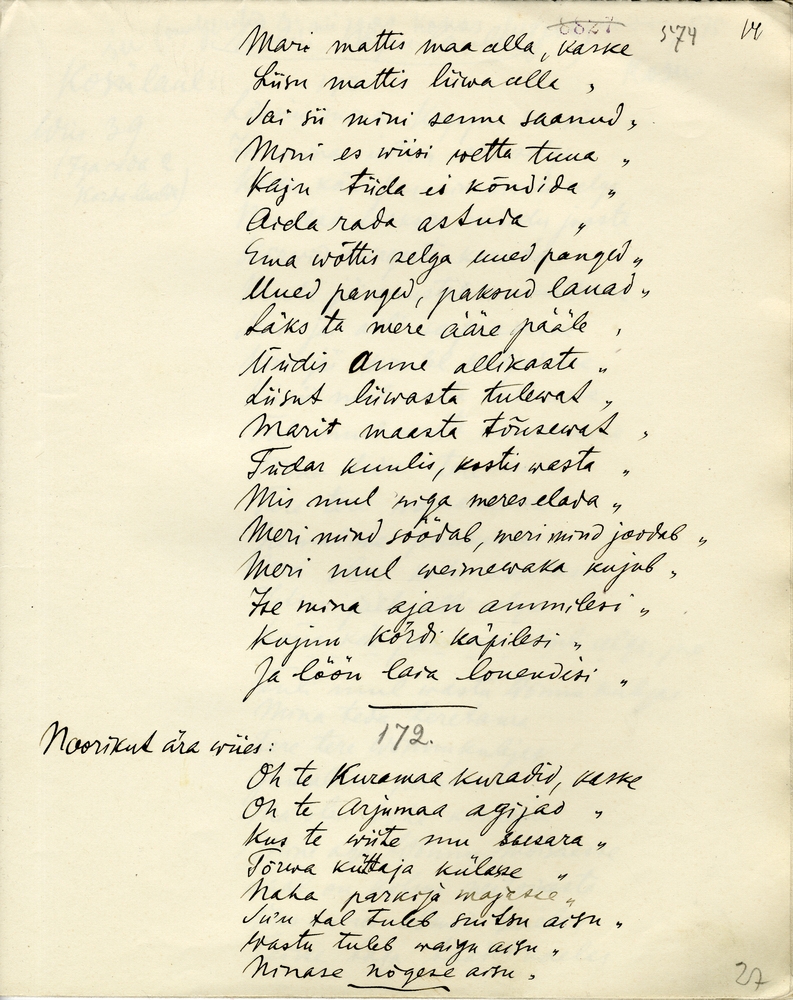 574 14
Mari mattis maa alla, kaske
Liisu mattis liiwa alla „
Sai sii mini senna saanud „
Mini es wiisi wetta tuua „
Kaju tiida ei kõndida „
Aida rada astuda „
Ema wõttis selga uued panged „
Uued panged, paksud lauad „
Läks ta mere ääre pääle „
Üüdis Anne allikasta „
Liisut liiwasta tulewat „
Marit maasta tõusewat „
Tüdar kuulis, kostis wasta „
Mis mul wiga meres elada „
Meri mind söödab, meri mind joodab „
Meri mul weimewaka kujub „
Ise mina ajan ammilesi „
Kujun kõrdi käpilesi „
Ja löön laia louendisi „
172.
Noorikut ära wiies:
Oh te Kuramaa kuradid, kaske
Oh te Arjumaa agijad „
Kus te wiite mu ssesara „
Tõrwa küttaja külasse „
Naha parkija majasse „
Siin tal tuleb suitsu aisu „
Wastu tuleb waigu aisu „
Ninase nõgese aisu „
27